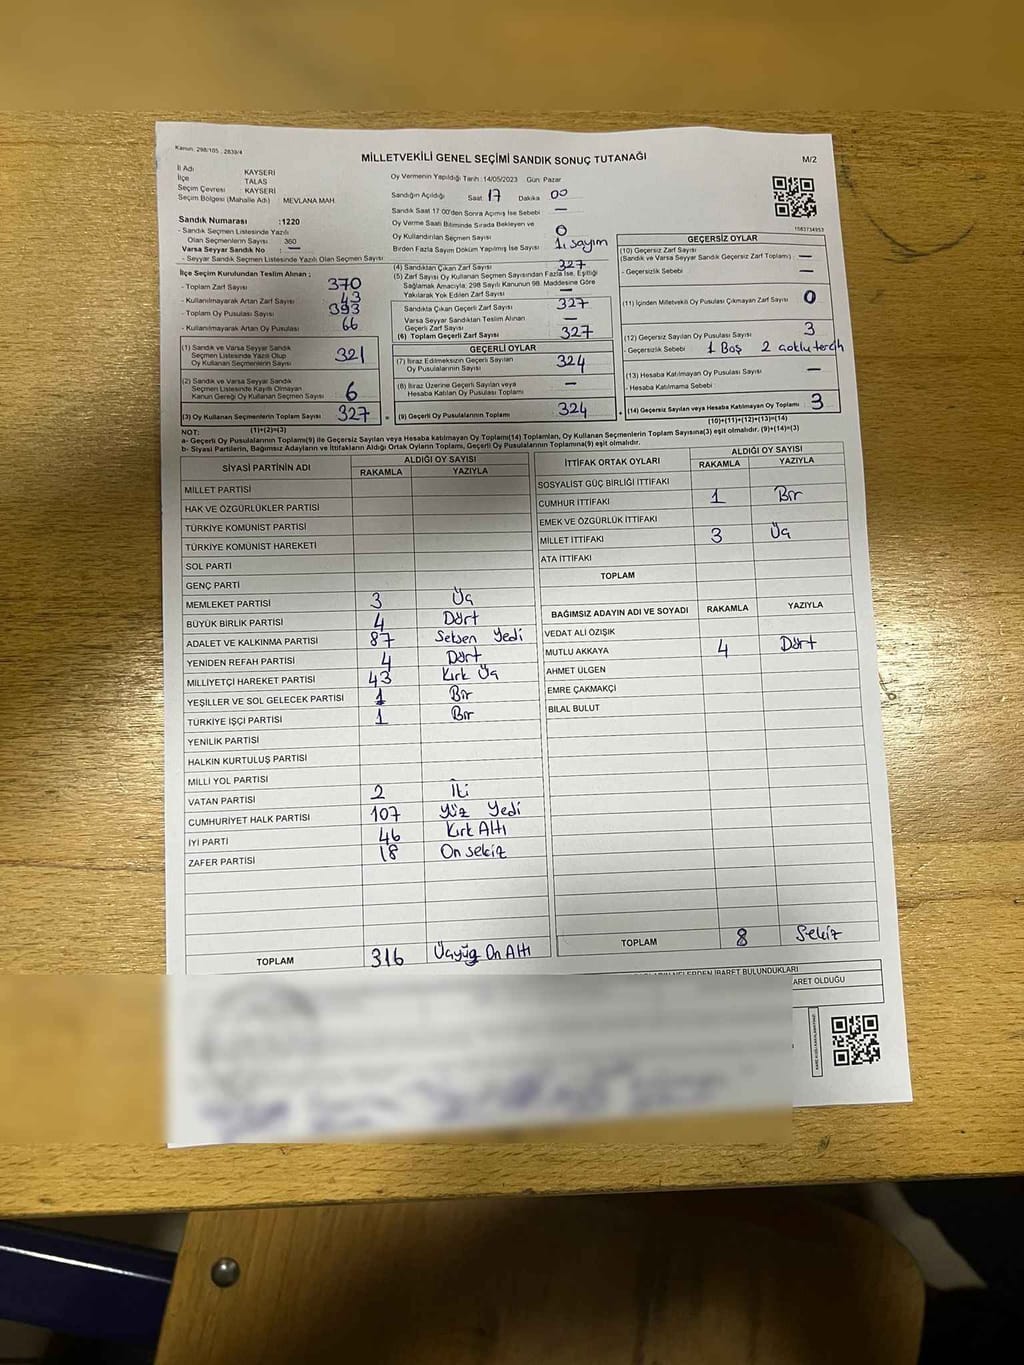 Kanun. 298/105 , 2839/4
MİLLETVEKİLİ GENEL SEÇİMİ SANDIK SONUÇ TUTANAĞI
M/2
İl Adı KAYSERİ
İlçe TALAS
Seçim Çevresi : KAYSERİ
Seçim Bölgesi (Mahalle Adı) MEVLANA MAH.
Sandık Numarası :1220
- Sandık Seçmen Listesinde Yazılı
Olan Seçmenlerin Sayısı: 360
Varsa Seyyar Sandık No : —
- Seyyar Sandık Seçmen Listesinde Yazılı Olan Seçmen Sayısı
Oy Vermenin Yapıldığı Tarih: 14/05/2023 Gün: Pazar
Sandığın Açıldığı Saat 17 Dakika 00
Sandık Saat 17.00'den Sonra Açılmış İse Sebebi —
Oy Verme Saati Bitiminde Sırada Bekleyen ve
Oy Kullandırılan Seçmen Sayısı 0
Birden Fazla Sayım Döküm Yapılmış İse Sayısı 1. sayım
1583734953
İlçe Seçim Kurulundan Teslim Alınan ;
- Toplam Zarf Sayısı 370
- Kullanılmayarak Artan Zarf Sayısı 43
- Toplam Oy Pusulası Sayısı 393
- Kullanılmayarak Artan Oy Pusulası 66
(1) Sandık ve Varsa Seyyar Sandık
Seçmen Listesinde Yazılı Olup
Oy Kullanan Seçmenlerin Sayısı 321
(2) Sandık ve Varsa Seyyar Sandık
Seçmen Listesinde Kayıtlı Olmayan
Kanun Gereği Oy Kullanan Seçmen Sayısı 6
(3) Oy Kullanan Seçmenlerin Toplam Sayısı 327
(1)+(2)=(3)
(4) Sandıktan Çıkan Zarf Sayısı 327
(5) Zarf Sayısı Oy Kullanan Seçmen Sayısından Fazla İse, Eşitliği
Sağlamak Amacıyla; 298 Sayılı Kanunun 98. Maddesine Göre
Yakılarak Yok Edilen Zarf Sayısı —
Sandıkta Çıkan Geçerli Zarf Sayısı 327
Varsa Seyyar Sandıktan Teslim Alınan
Geçerli Zarf Sayısı —
(6) Toplam Geçerli Zarf Sayısı 327
GEÇERLİ OYLAR
(7) İtiraz Edilmeksizin Geçerli Sayılan
Oy Pusulalarının Sayısı 324
(8) İtiraz Üzerine Geçerli Sayılan veya
Hesaba Katılan Oy Pusulaları Toplamı —
= (9) Geçerli Oy Pusulalarının Toplamı 324
GEÇERSİZ OYLAR
(10) Geçersiz Zarf Sayısı
(Sandık ve Varsa Seyyar Sandık Geçersiz Zarf Toplamı) : —
- Geçersizlik Sebebi : —
(11) İçinden Milletvekili Oy Pusulası Çıkmayan Zarf Sayısı 0
(12) Geçersiz Sayılan Oy Pusulası Sayısı 3
- Geçersizlik Sebebi : 1 Boş 2 çoklu tercih
(13) Hesaba Katılmayan Oy Pusulası Sayısı —
- Hesaba Katılmama Sebebi :
+ (14) Geçersiz Sayılan veya Hesaba Katılmayan Oy Toplamı 3
(10)+(11)+(12)+(13)=(14)
NOT:
a- Geçerli Oy Pusulalarının Toplamı(9) ile Geçersiz Sayılan veya Hesaba Katılmayan Oy Toplamı(14) Toplamları, Oy Kullanan Seçmenlerin Toplam Sayısına(3) eşit olmalıdır. (9)+(14)=(3)
b- Siyasi Partilerin, Bağımsız Adayların ve İttifakların Aldığı Ortak Oyların Toplamı, Geçerli Oy Pusulalarının Toplamına(9) eşit olmalıdır.
SİYASİ PARTİNİN ADI ALDIĞI OY SAYISI
RAKAMLA YAZIYLA
MİLLET PARTİSİ
HAK VE ÖZGÜRLÜKLER PARTİSİ
TÜRKİYE KOMÜNİST PARTİSİ
TÜRKİYE KOMÜNİST HAREKETİ
SOL PARTİ
GENÇ PARTİ
MEMLEKET PARTİSİ 3 Üç
BÜYÜK BİRLİK PARTİSİ 4 Dört
ADALET VE KALKINMA PARTİSİ 87 Seksen Yedi
YENİDEN REFAH PARTİSİ 4 Dört
MİLLİYETÇİ HAREKET PARTİSİ 43 Kırk Üç
YEŞİLLER VE SOL GELECEK PARTİSİ 1 Bir
TÜRKİYE İŞÇİ PARTİSİ 1 Bir
YENİLİK PARTİSİ
HALKIN KURTULUŞ PARTİSİ
MİLLİ YOL PARTİSİ
VATAN PARTİSİ 2 İki
CUMHURİYET HALK PARTİSİ 107 Yüz Yedi
İYİ PARTİ 46 Kırk Altı
ZAFER PARTİSİ 18 On sekiz
TOPLAM 316 Üçyüz On Altı
İTTİFAK ORTAK OYLARI ALDIĞI OY SAYISI
RAKAMLA YAZIYLA
SOSYALİST GÜÇ BİRLİĞİ İTTİFAKI
CUMHUR İTTİFAKI 1 Bir
EMEK VE ÖZGÜRLÜK İTTİFAKI
MİLLET İTTİFAKI 3 Üç
ATA İTTİFAKI
TOPLAM
BAĞIMSIZ ADAYIN ADI VE SOYADI RAKAMLA YAZIYLA
VEDAT ALİ ÖZIŞIK
MUTLU AKKAYA 4 Dört
AHMET ÜLGEN
EMRE ÇAKMAKÇI
BİLAL BULUT
TOPLAM 8 Sekiz
NELERDEN İBARET BULUNDUKLARI
ARET OLDUĞU